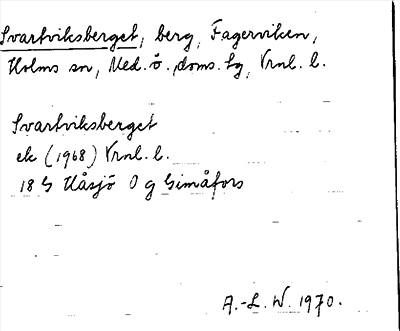 Svartviksberget, berg, Fagerviken,
Holms sn, Med. ö. doms. tg, Vrnl. l.
Svartviksberget
ek (1968) Vrnl. l.
18 G Håsjö 0 g Gimåfors
A.-L. W. 1970.